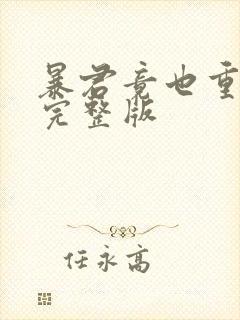 暴君竟也重
完整版
任永高